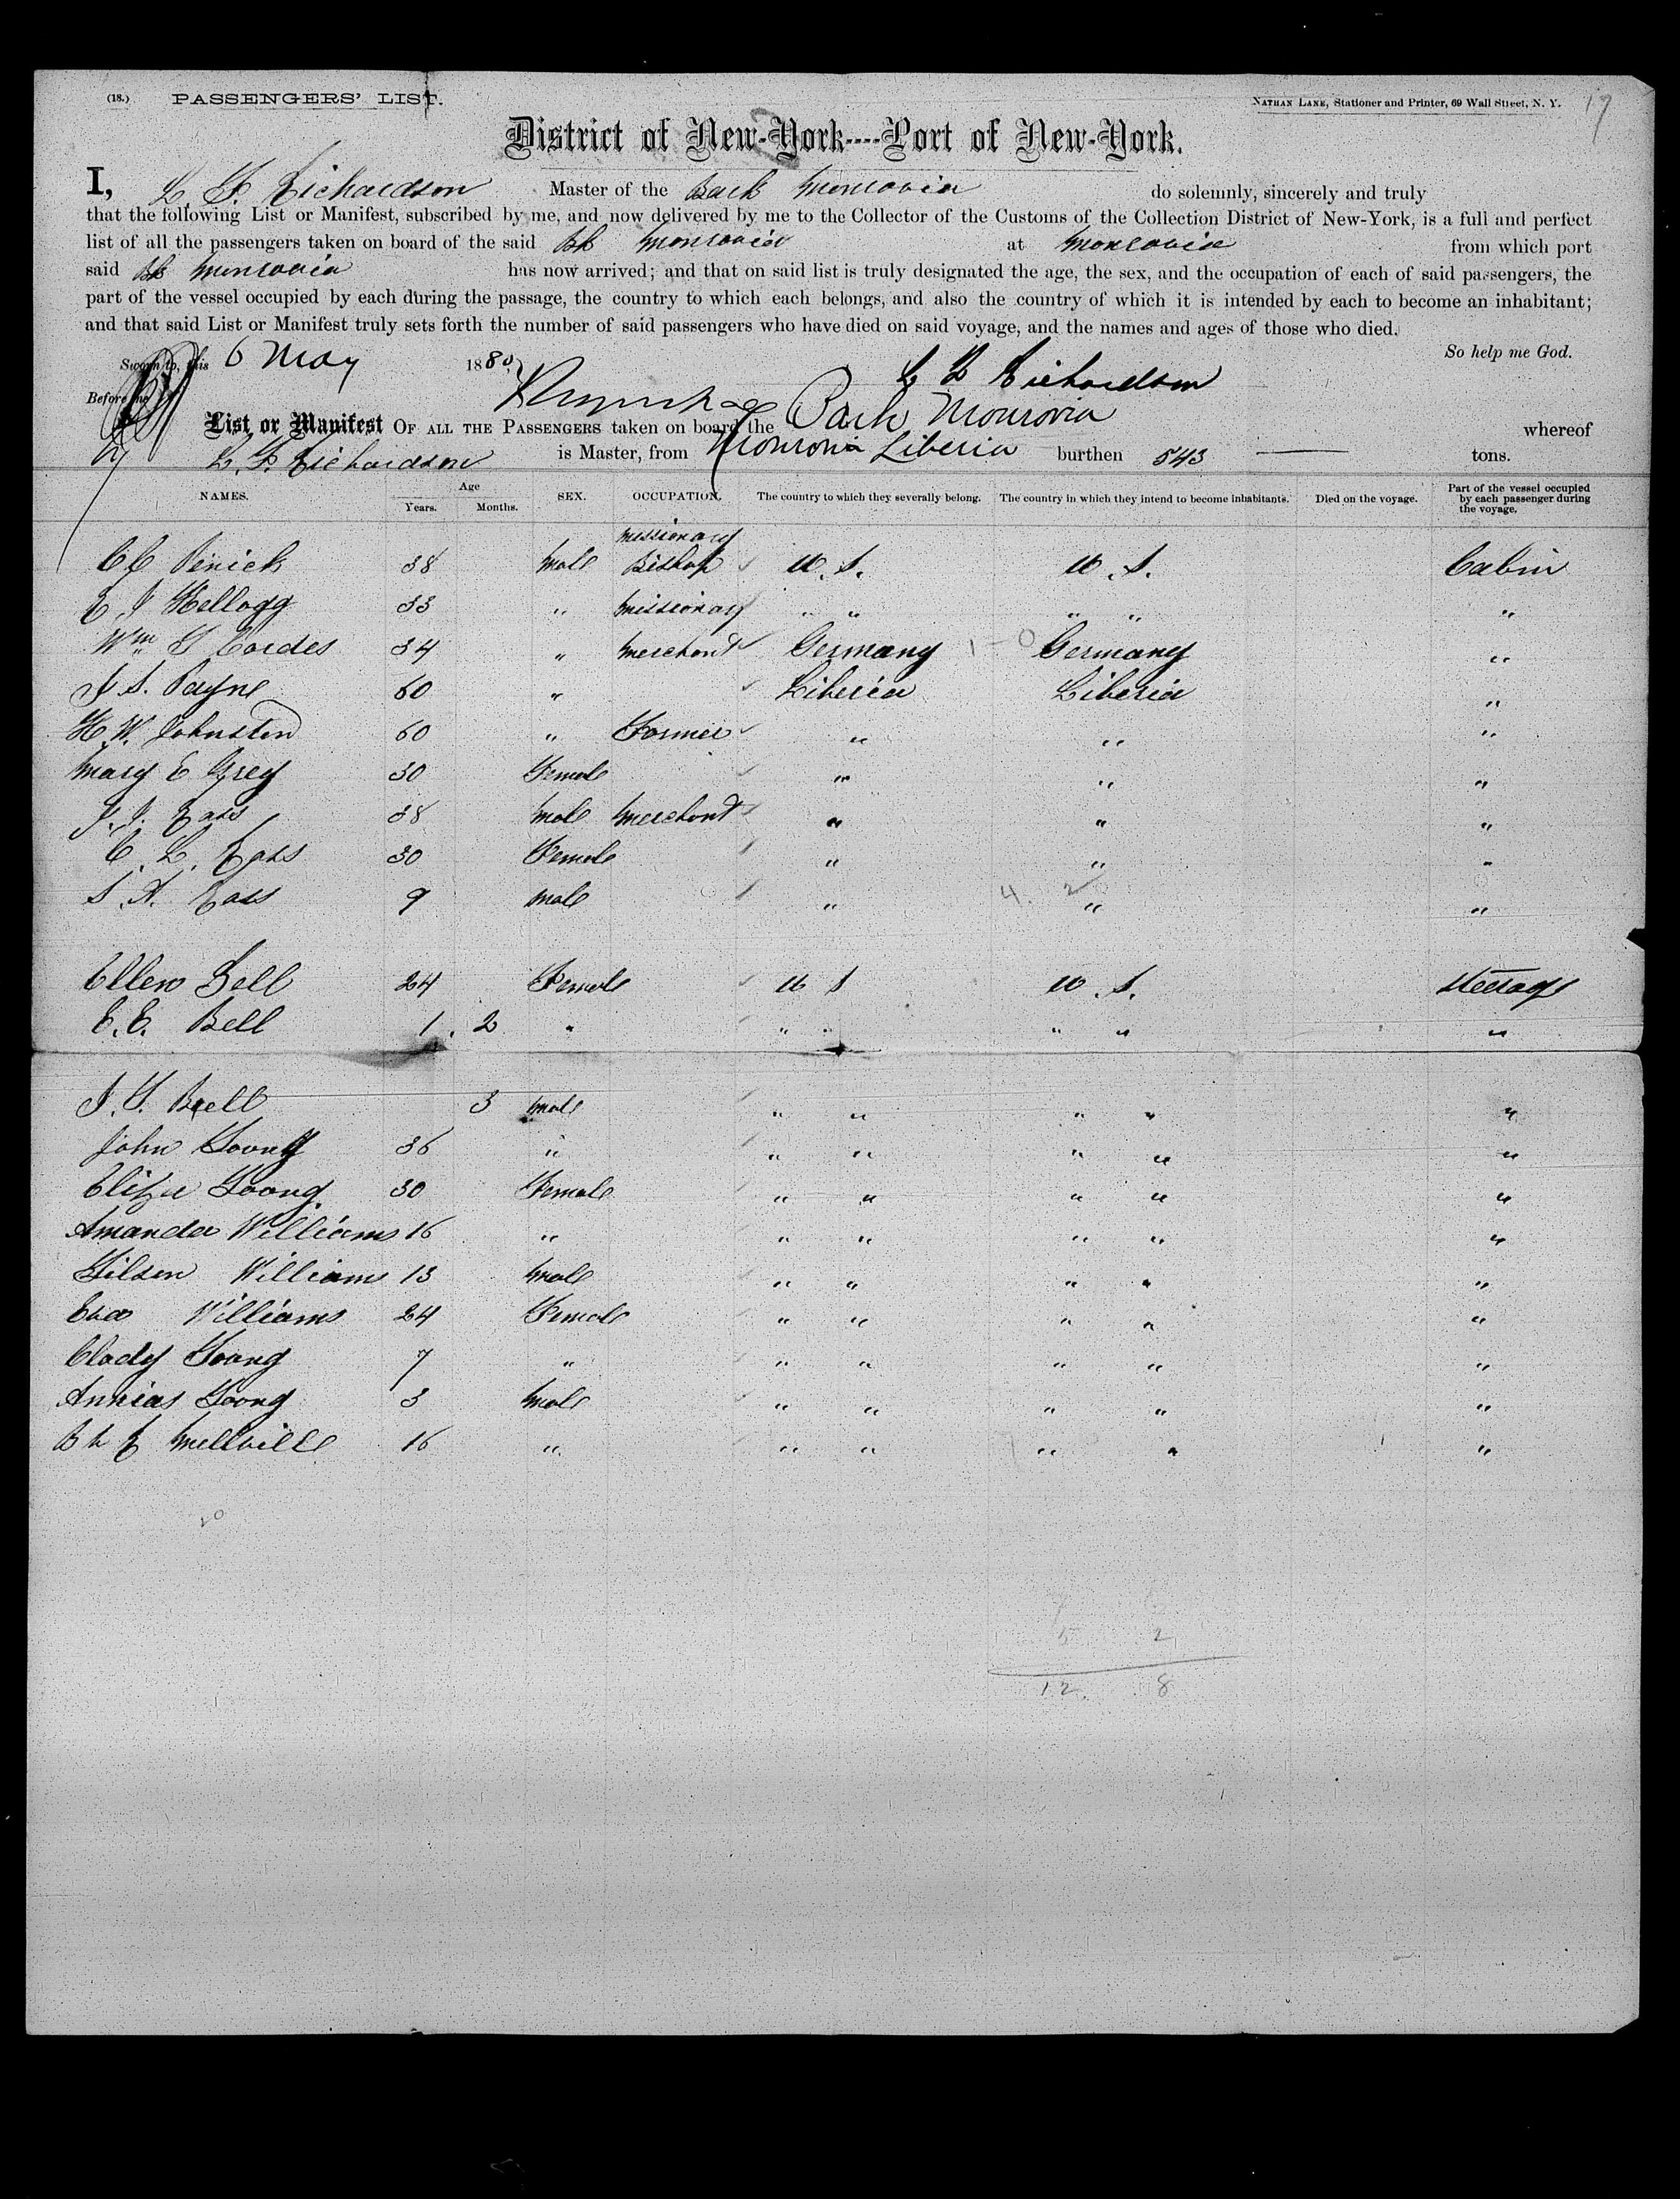 (18.) PASSENGERS' LIST. NATHAN LANE, Stationer and Printer, 69 Wall Street, N. Y. 17
District of New-York----Port of New-York.
I, L. F. Richardson Master of the Bark Monrovia do solemnly, sincerely and truly
that the following List or Manifest, subscribed by me, and now delivered by me to the Collector of the Customs of the Collection District of New-York, is a full and perfect
list of all the passengers taken on board of the said Bk Monrovia at Monrovia from which port
said Bk Monrovia has now arrived; and that on said list is truly designated the age, the sex, and the occupation of each of said passengers, the
part of the vessel occupied by each during the passage, the country to which each belongs, and also the country of which it is intended by each to become an inhabitant;
and that said List or Manifest truly sets forth the number of said passengers who have died on said voyage, and the names and ages of those who died.
So help me God.
Sworn to, this 6 May 1880
L F Richardson
Before me
List or Manifest OF ALL THE PASSENGERS taken on board the Bark Monrovia whereof
L. F. Richardson is Master, from Monrovia Liberia burthen 543 tons.
NAMES. Age Years. Months. SEX. OCCUPATION. The country to which they severally belong. The country in which they intend to become inhabitants. Died on the voyage. Part of the vessel occupied by each passenger during the voyage.
C C Penick 38 Male Missionary Bishop U. S. U. S. Cabin
E J Kellogg 33 " Missionary " " " " "
Wm G Cordes 34 " Merchant Germany 1-0 Germany "
J S. Payne 60 " Liberia Liberia "
H. W. Johnston 60 " Farmer " " "
Mary E Grey 30 Female " " "
J. J. Ross 38 Male Merchant " " "
C. L. Ross 30 Female " " "
S. A. Ross 9 Male " 4. 2 " "
Ellen Bell 24 Female U S U. S. Steerage
E. E. Bell 1. 2 " " " " " "
J. G. Bell 3 Male " " " " "
John Young 36 " " " " " "
Eliza Young 30 Female " " " " "
Amanda Williams 16 " " " " " "
Gilson Williams 13 Male " " " " "
Eva Williams 24 Female " " " " "
Clady Young 7 " " " " " "
Annias Young 3 Male " " " " "
Mellville 16 " " " " " "
20
5 2
12. 8